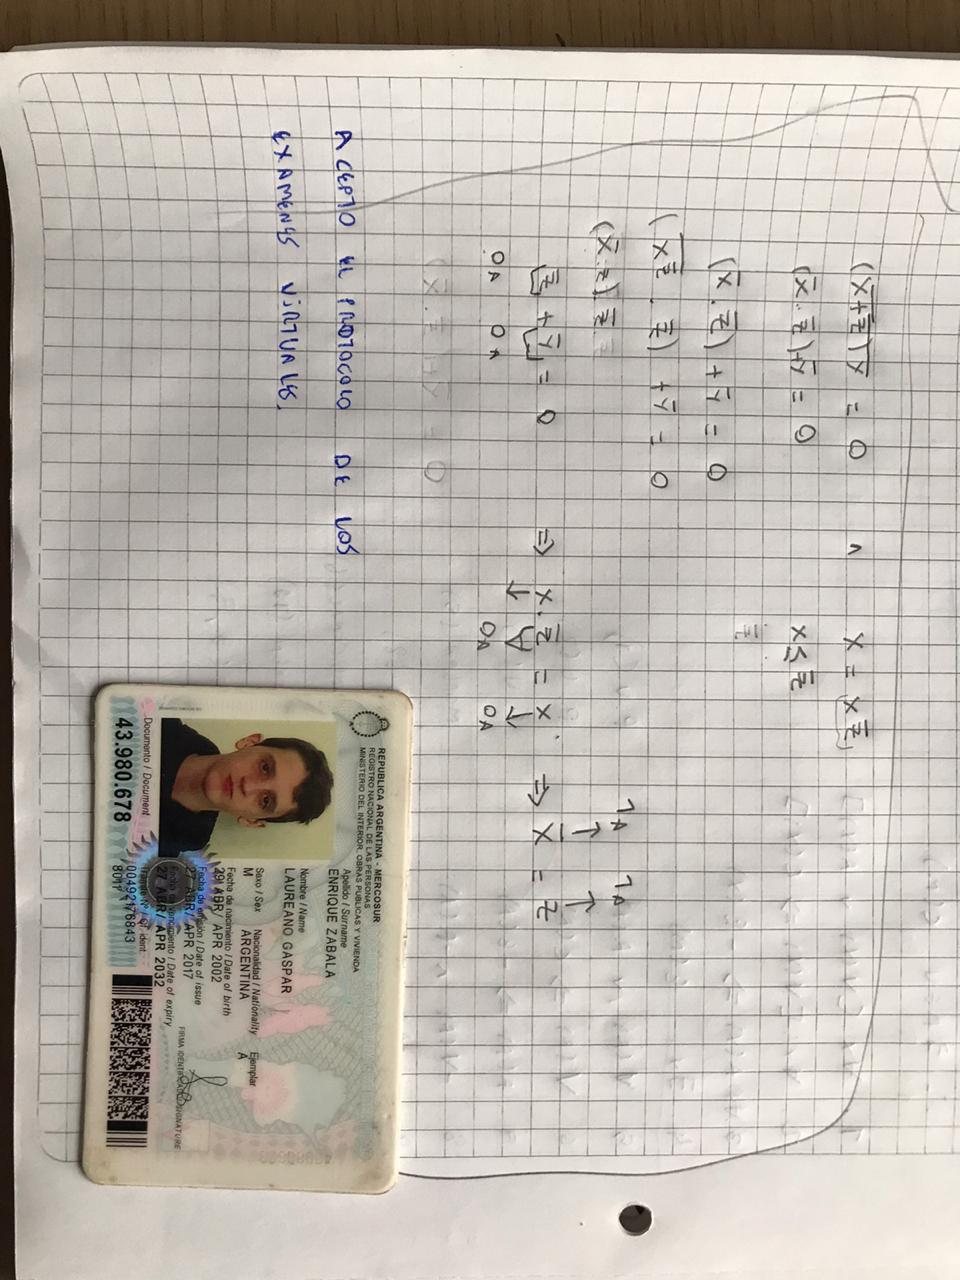 (X̄+z̄)y̅ = 0 ∧ X = X z̄
(X̄.z̄)+ȳ = 0 X ≤ z̄
(X̄.z̄)+ȳ = 0 z̄
(X̄z̄ . z̄) +ȳ = 0
(X̄.z) z̄
z̄ + ȳ = 0 ⇒ X.z̄ = X ⇒ X̄ = z
0A 0A ↓ 0A ↓ 0A ↑ 1A ↑ 1A
ACEPTO EL PROTOCOLO DE LOS
EXAMENES VIRTUALES.
REPUBLICA ARGENTINA - MERCOSUR
REGISTRO NACIONAL DE LAS PERSONAS
MINISTERIO DEL INTERIOR, OBRAS PUBLICAS Y VIVIENDA
Apellido / Surname
ENRIQUE ZABALA
Nombre / Name
LAUREANO GASPAR
Sexo / Sex Nacionalidad / Nationality Ejemplar
M ARGENTINA A
Fecha de nacimiento / Date of birth
29 ABR/ APR 2002
Fecha de emisión / Date of issue
27 ABR/ APR 2017
Fecha de vencimiento / Date of expiry
27 ABR/ APR 2032
FIRMA IDENTIFICADO / SIGNATURE
Documento / Document
43.980.678
Trámite Nº / Of. ident.
00492176843